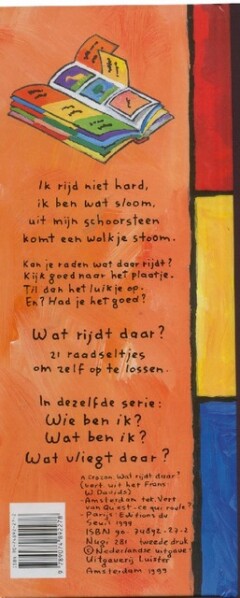 Ik rijd niet hard,
ik ben wat sloom,
uit mijn schoorsteen
komt een wolkje stoom.
Kan je raden wat daar rijdt?
Kijk goed naar het plaatje.
Til dan het luikje op.
En? Had je het goed?
Wat rijdt daar?
21 raadseltjes
om zelf op te lossen.
In dezelfde serie:
Wie ben ik?
Wat ben ik?
Wat vliegt daar?
Wat rijdt daar?
(vert. uit het Frans
Amsterdam
van Qu'est-ce qui roule?
Parijs: Editions du
Seuil 1999
ISBN 90-
Nugi 281 tweede druk
© Nederlandse uitgave
Uitgeverij
Amsterdam 1999